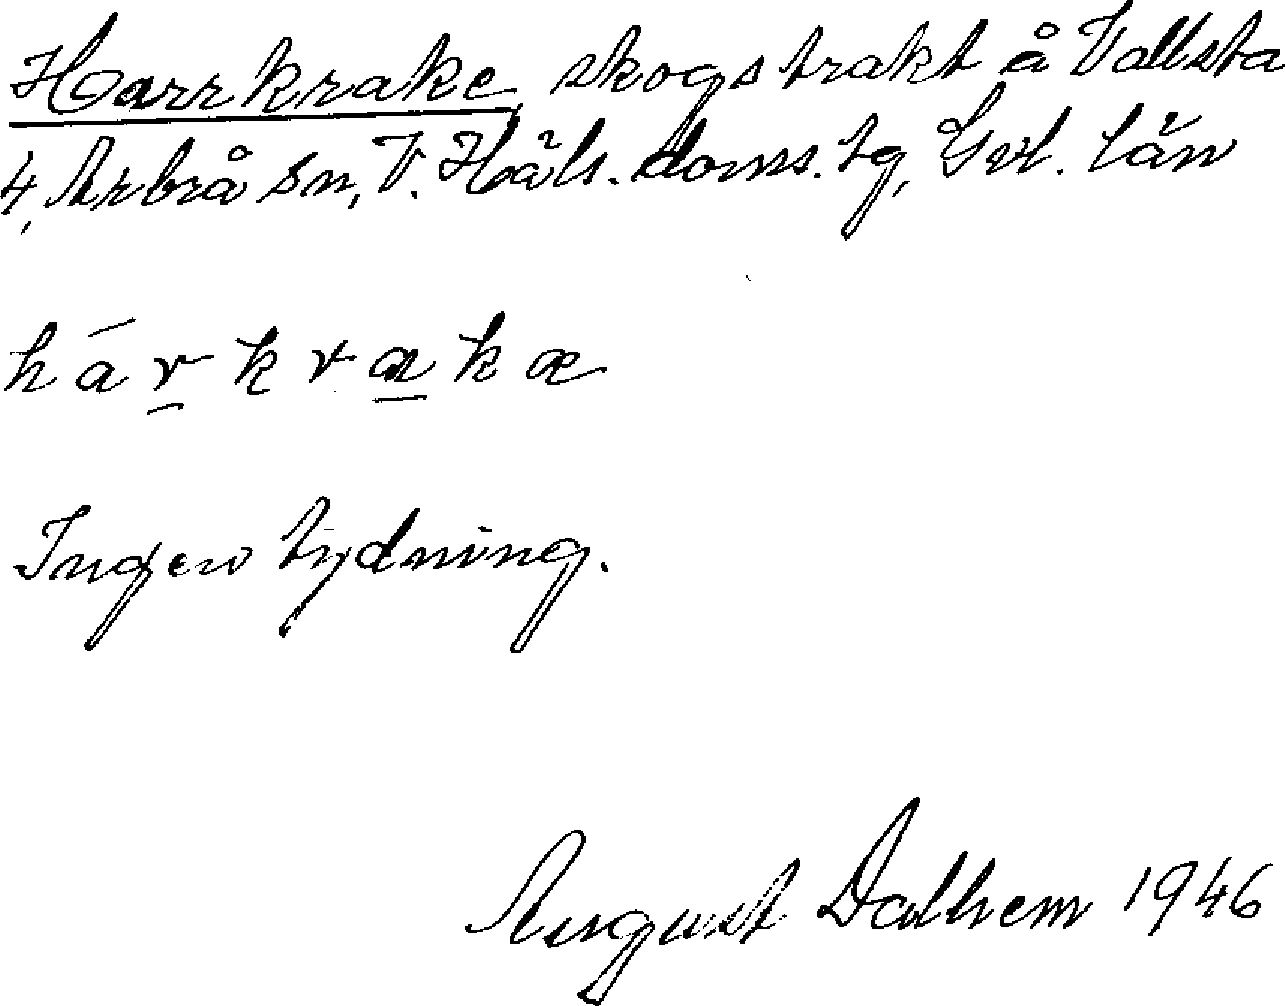 Harrkrake, skogstrakt å Vallsta
4, Arbrå sn, V. Häls. doms. tg, Gvl. län
hárkrakæ
Ingen tydning.
August Dalhem 1946